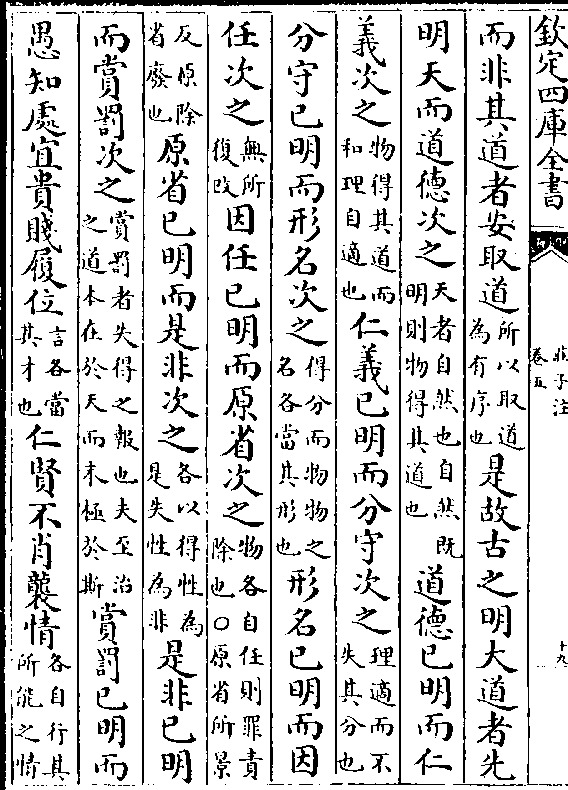 欽定四庫全書
莊子注
卷五
十九
而非其道者安取道所以取道為有序也是故古之明大道者先
明天而道德次之天者自然也自然既明則物得其道也道德已明而仁
義次之物得其道而和理自適也仁義已明而分守次之理適而不失其分也
分守已明而形名次之得分而物物之名各當其形也形名已明而因
任次之無所復改因任已明而原省次之物各自任則罪責除也○原省所景
反原除省廢也原省已明而是非次之各以得性為是失性為非是非已明
而賞罰次之賞罰者失得之報也夫至治之道本在於天而末極於斯賞罰已明而
愚知處宜貴賤履位言各當其才也仁賢不肖襲情各自行其所能之情